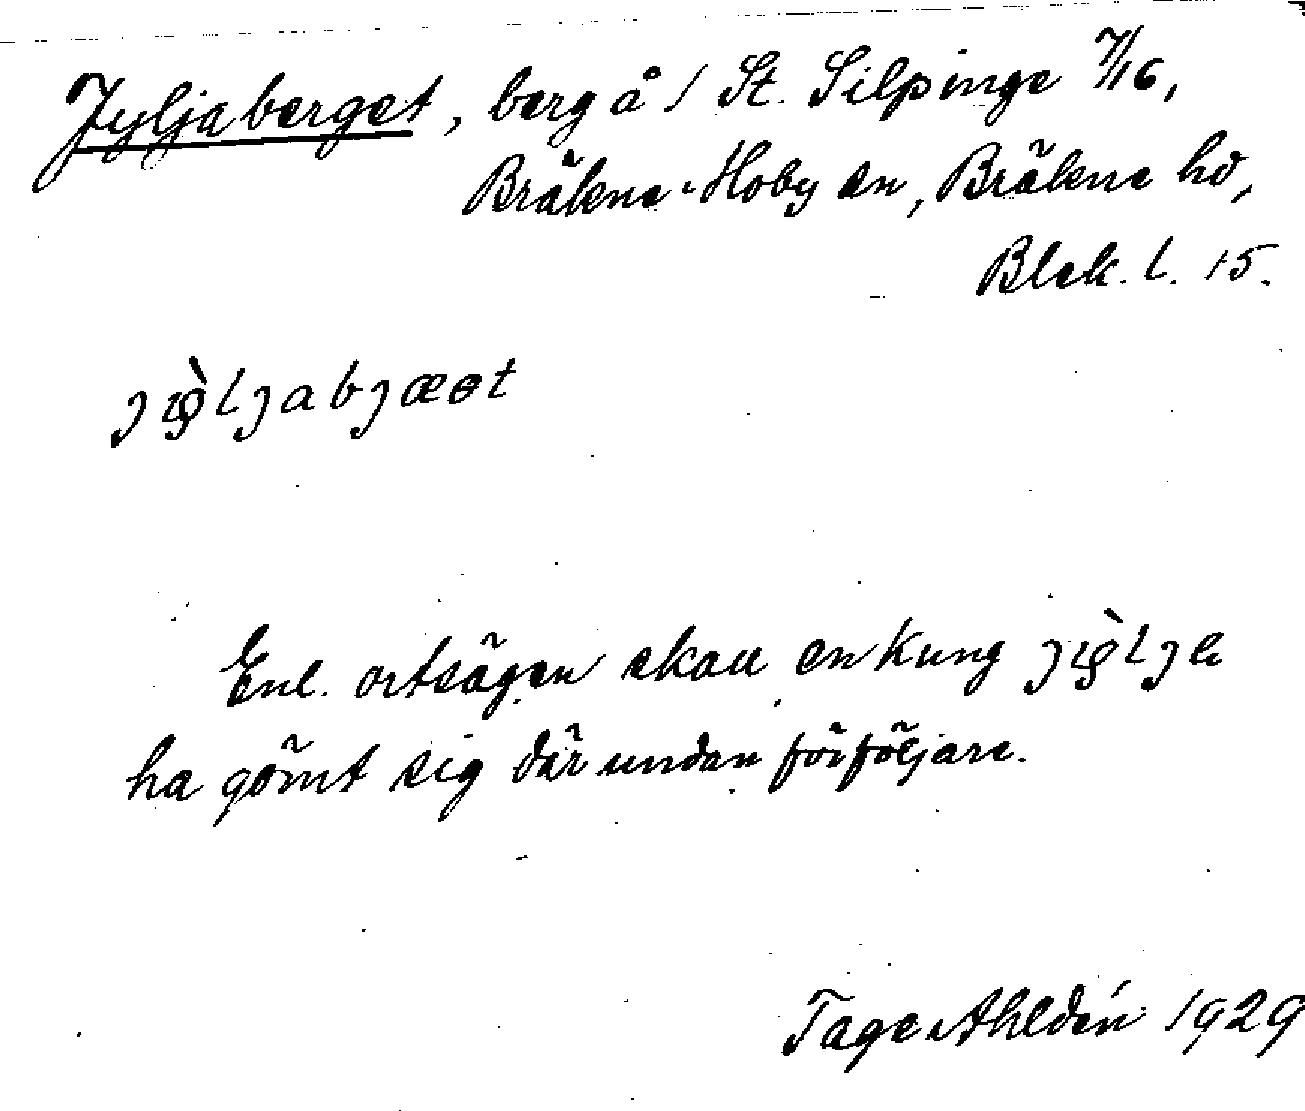 Jyljaberget, berg å 1 St. Silpinge 7/16,
Bräkne-Hoby sn, Bräkne hd,
Blek. l. 15.
Enl. ortsägen skall en kung
ha gömt sig där undan förföljare.
Tage Ahldén 1929